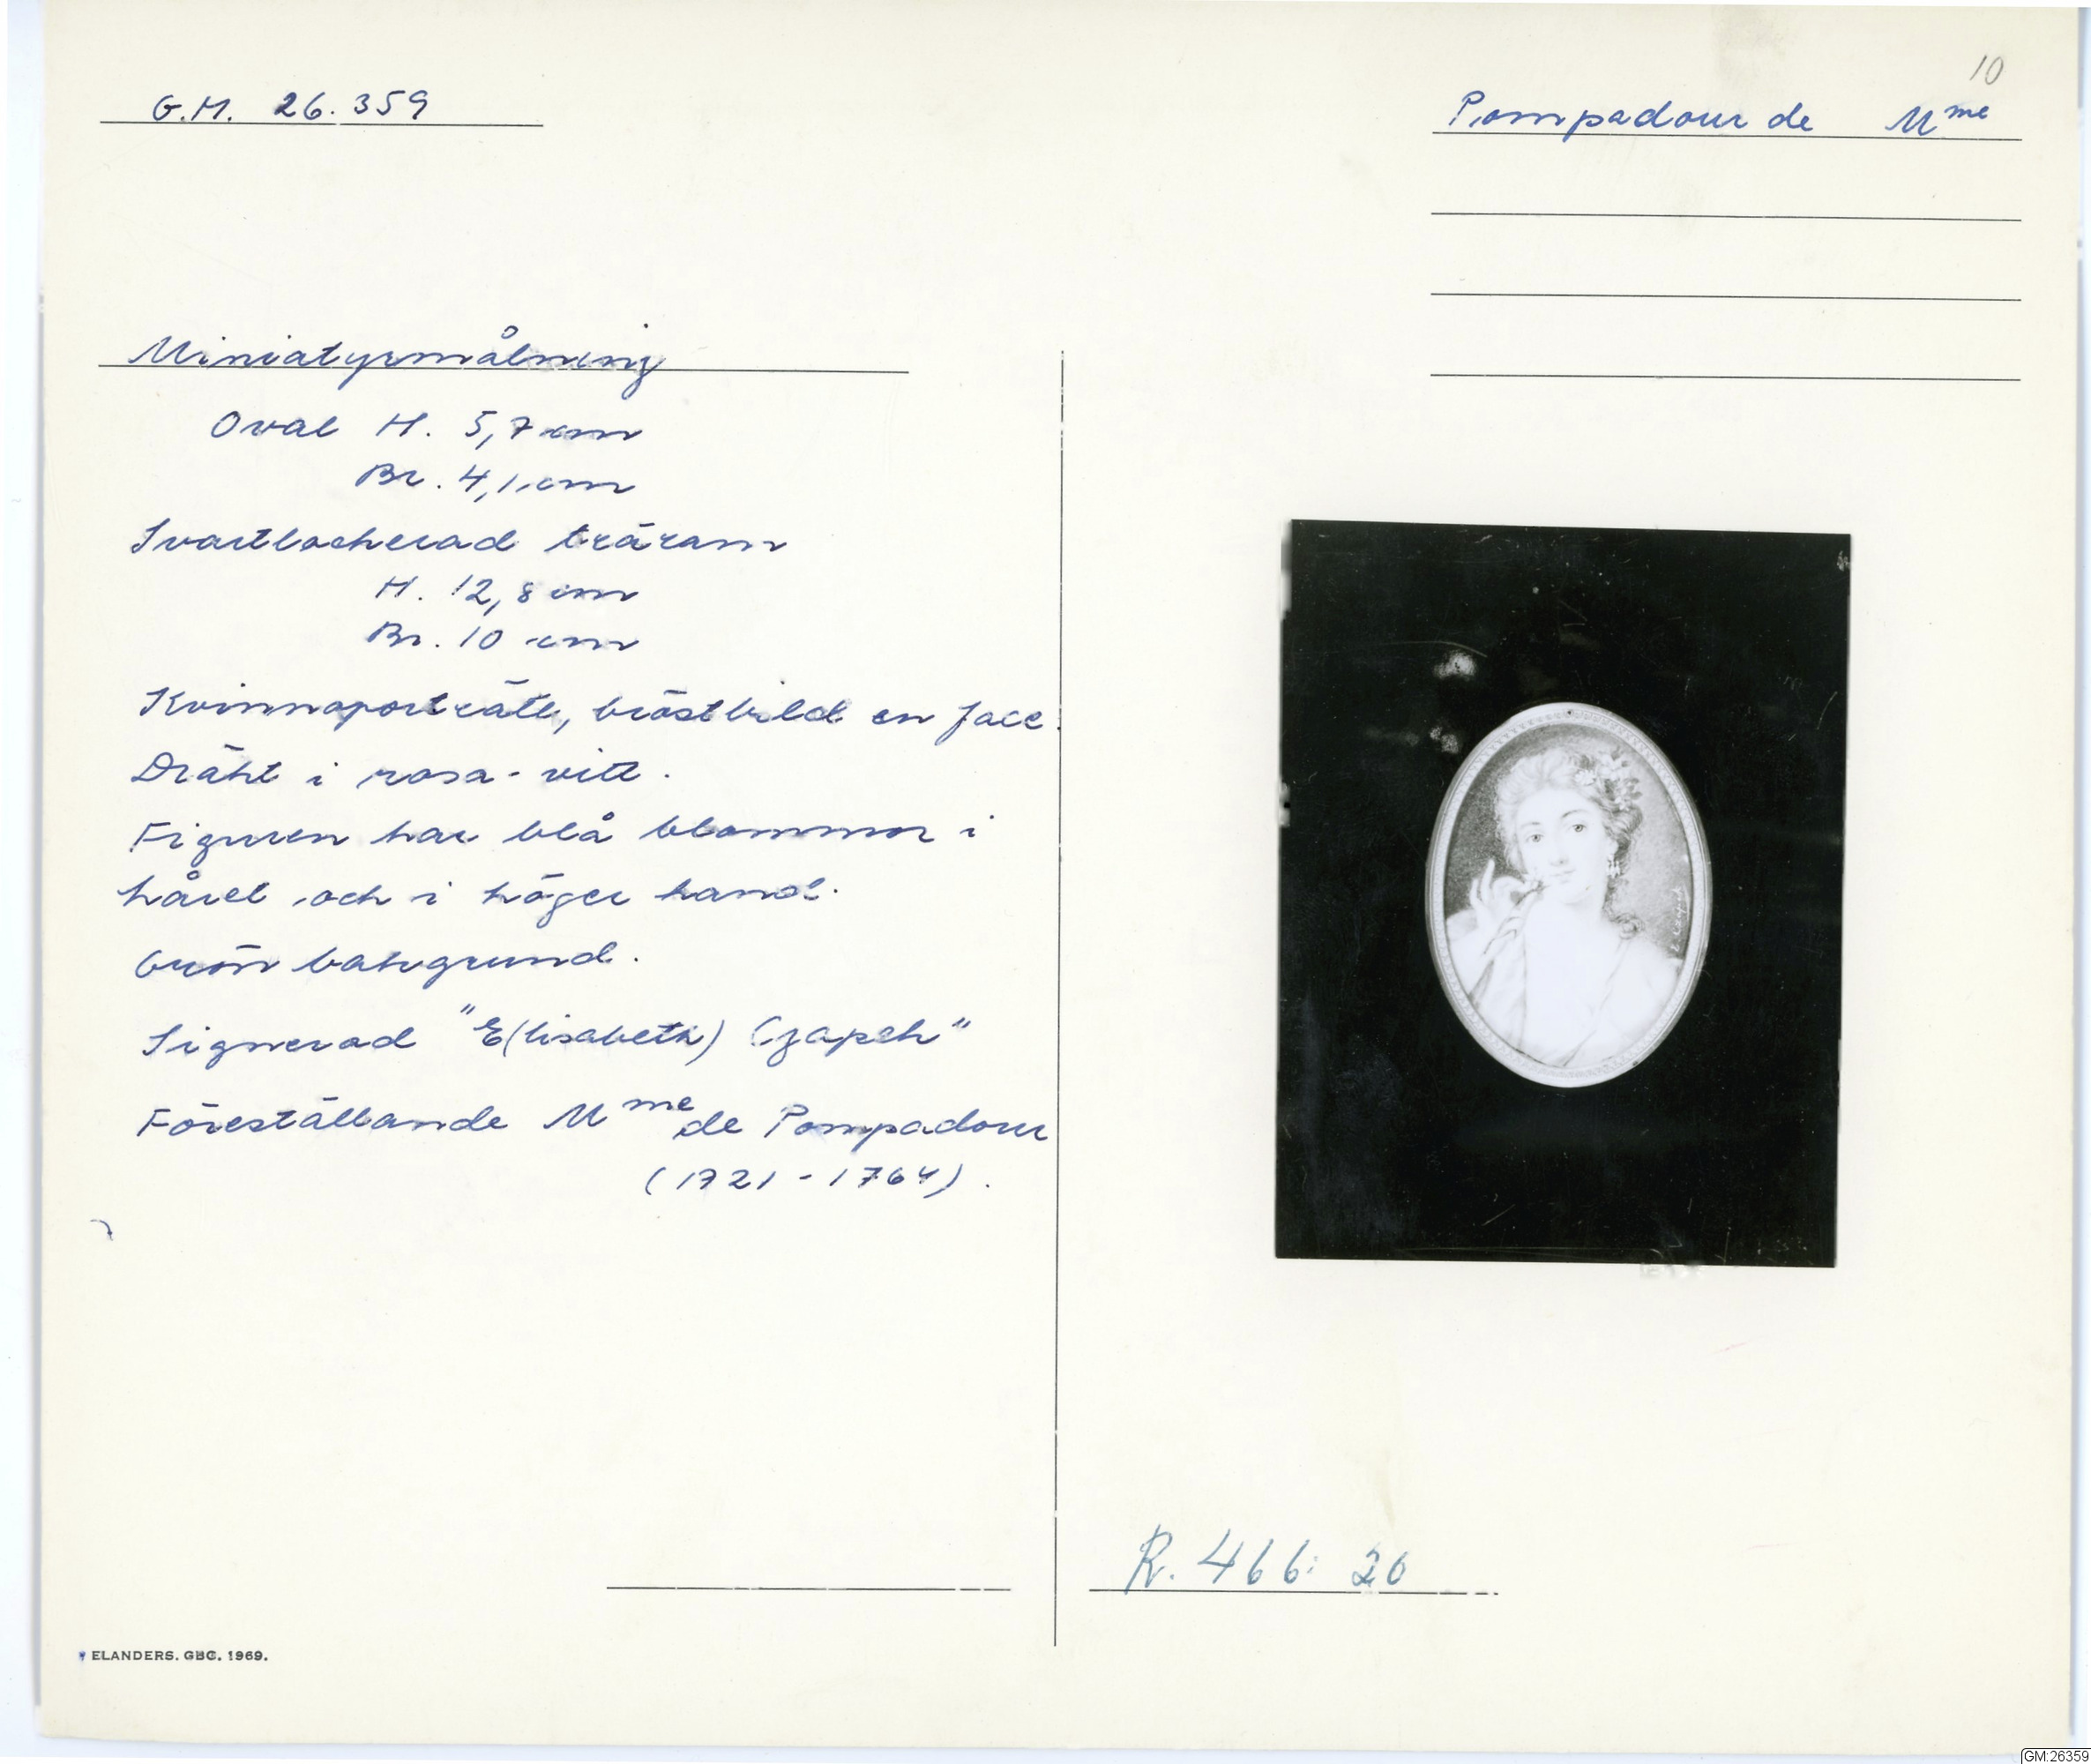 10
G.M. 26.359
Pompadour de Mme
Miniatyrmålning
Oval H. 5,7 cm
Br. 4,1 cm
Svartlackerad träram
H. 12,8 cm
Br. 10 cm
Kvinnoporträtt, bröstbild en face.
Dräkt i rosa-vitt.
Figuren har blå blommor i
håret och i höger hand.
Grön bakgrund.
Signerad "E(lisabeth) Czapek"
Föreställande Mme de Pompadour
(1721-1764).
R. 466: 20
ELANDERS. GBG. 1969.
GM:26359